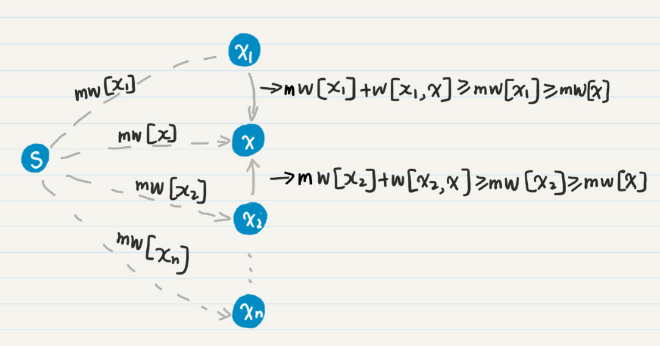 x₁
mw[x₁]
→mw[x₁]+w[x₁,x]⩾mw[x₁]⩾mw[x]
mw[x]
x
S
mw[x₂]
→mw[x₂]+w[x₂,x]⩾mw[x₂]⩾mw[x]
x₂
mw[xn]
xn